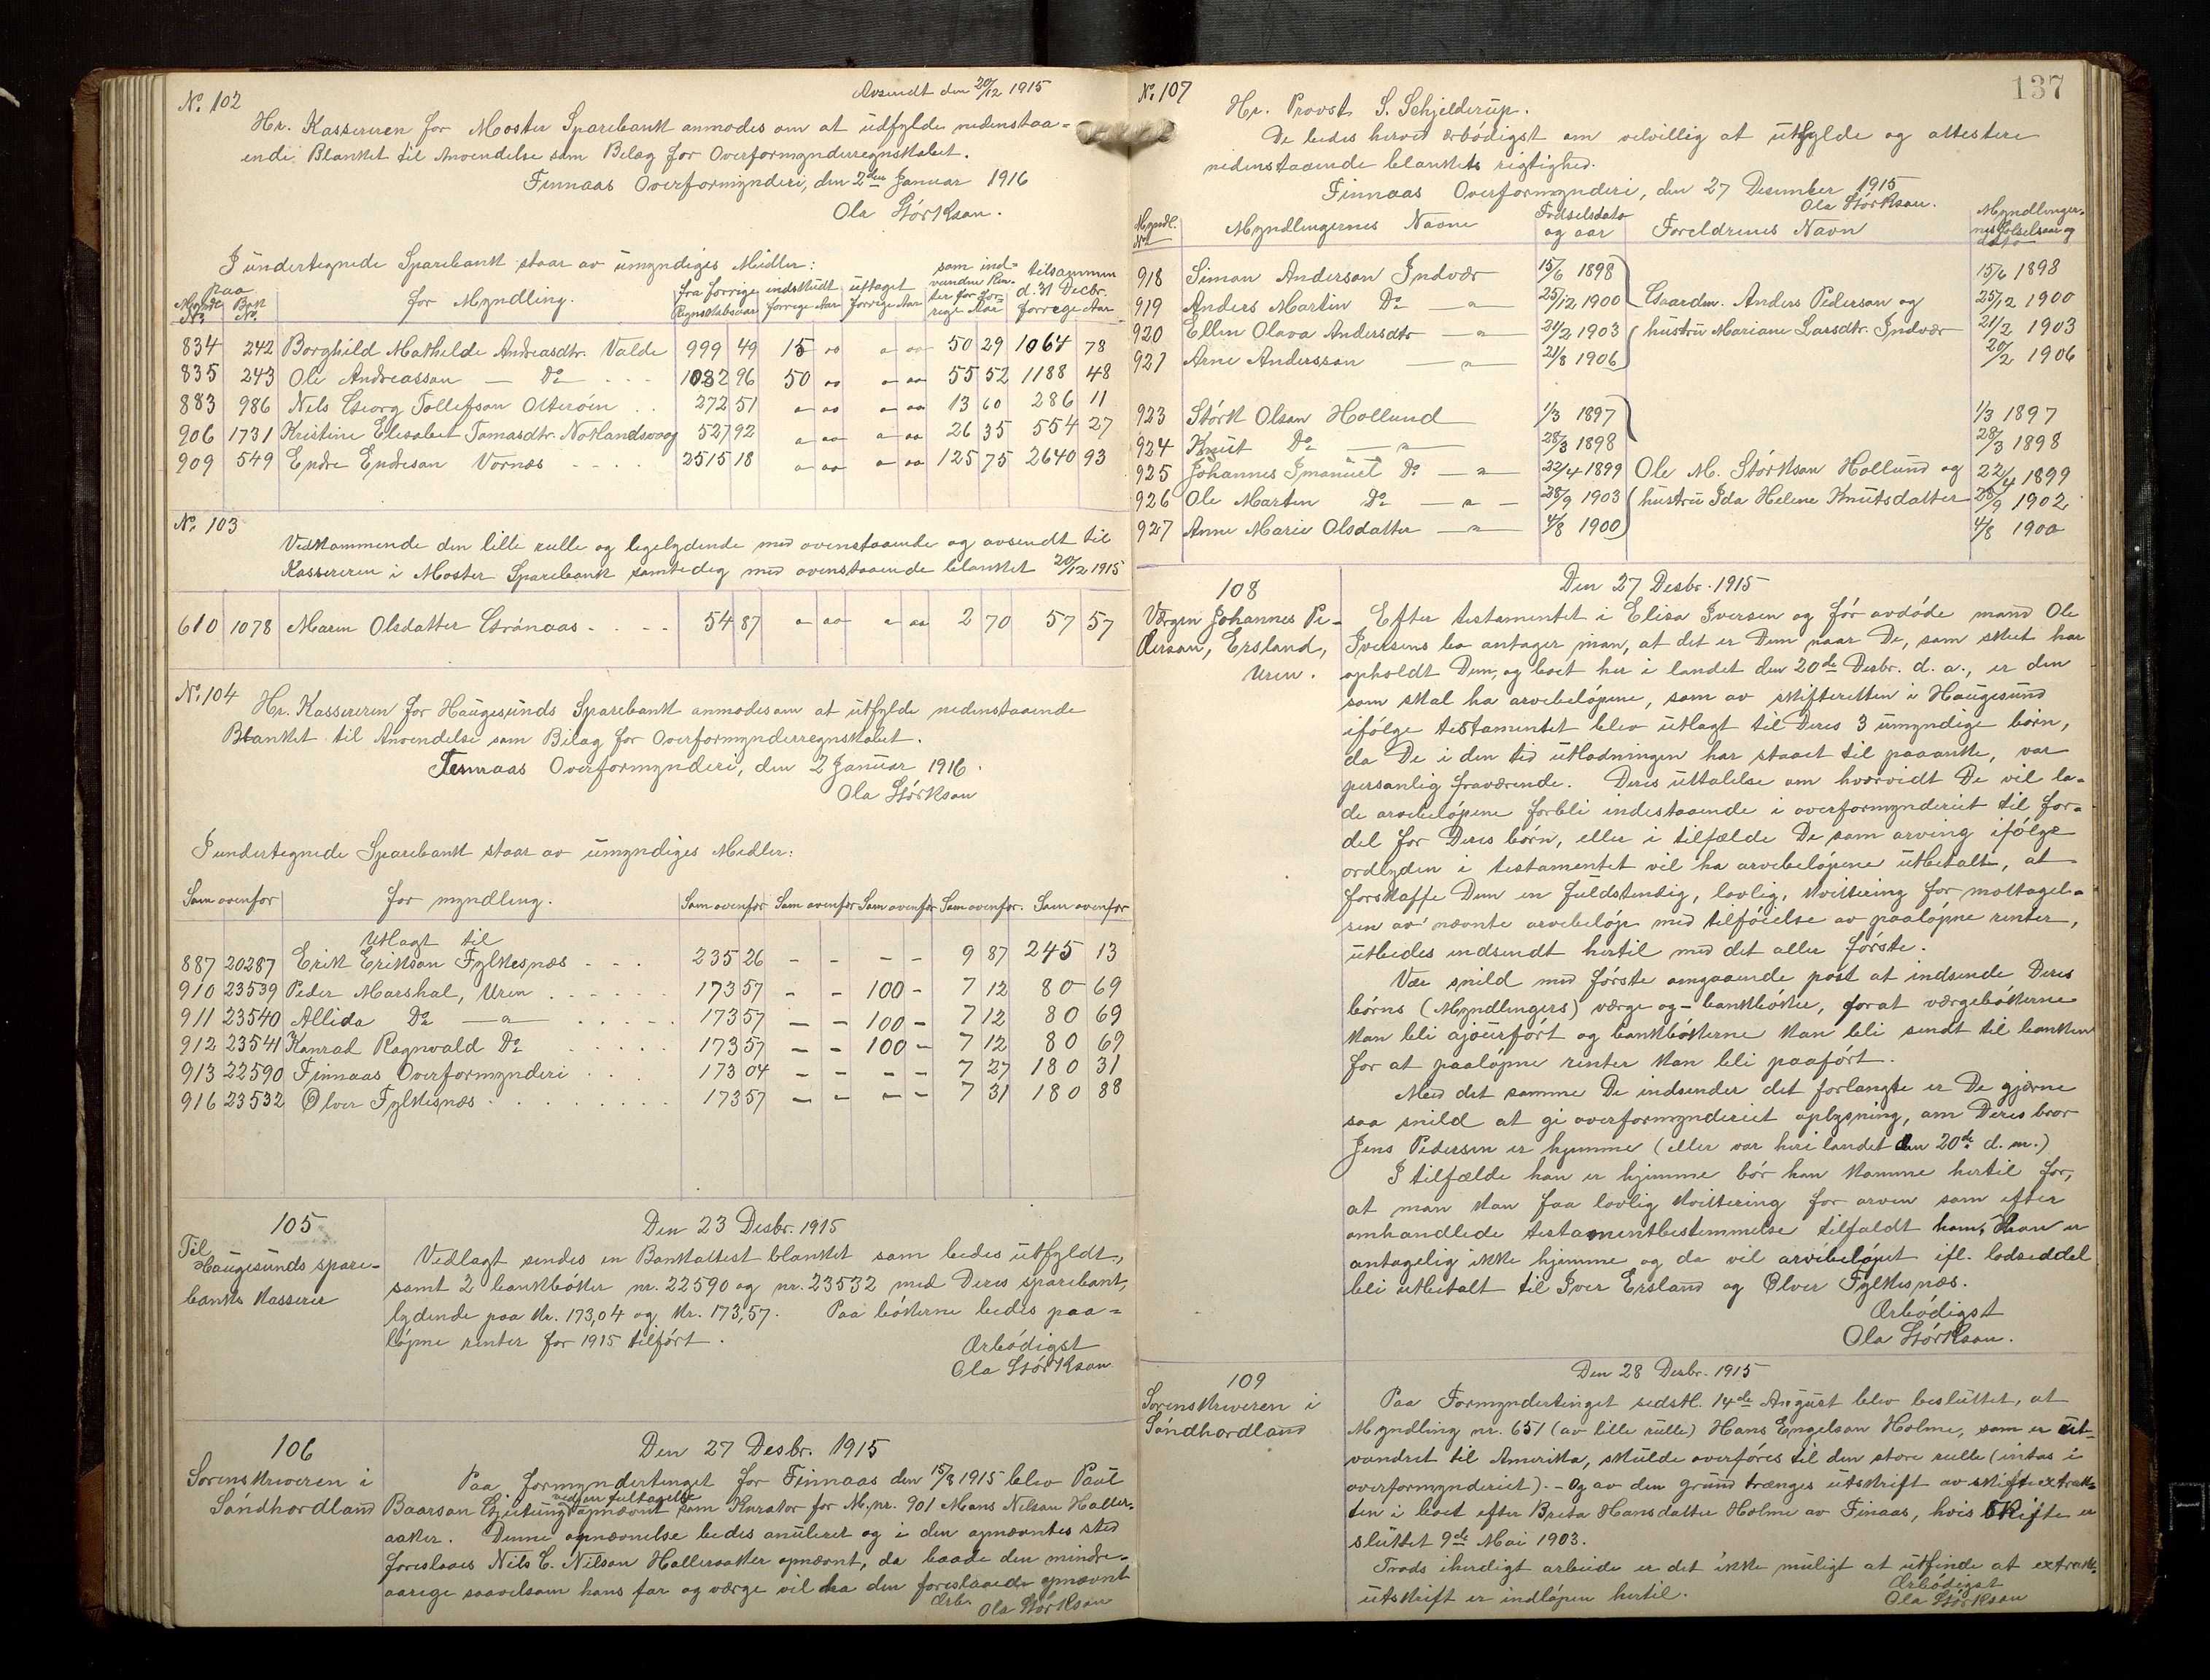 Avsendt den 20/12 1915
No. 102
Hr. Kassereren for Moster Sparebank anmodes om at udfylde nedenstaa-
ende Blanket til Anvendelse som Bilag for Overformynderregnskabet.
Finnaas Overformynderi, den 2den Januar 1916
Ola Størkson.
I undertegnede Sparebank staar av umyndiges Midler:
Myndl. No. | paa Bok No. | for Myndling. | fra forrige Regnskabsaar | indskudt forrige Aar | uttaget forrige Aar | som ind-vundne Ren-ter for for-rige Aar | tilsammen d. 31 Decbr. forrege Aar
834 242 Borghild Mathilde Andreasdtr. Valde 999 49 15 " " " 50 29 1064 78
835 243 Ole Andreasson — Do - - - 1082 96 50 " " " 55 52 1188 48
883 986 Nils Georg Tollefson Otterøen . . 272 51 " " " " 13 60 286 11
906 1731 Kristine Elisabet Tomasdtr. Notlandsvaag 527 92 " " " " 26 35 554 27
909 549 Endre Endreson Vornæs - - - - 2515 18 " " " " 125 75 2640 93
No. 103
Vedkommende den lille rulle og ligelydende med ovenstaaende og avsendt til
Kassereren i Moster Sparebank samtedig med ovenstaaende blanket 20/12 1915
610 1078 Maren Olsdatter Grønaas - - - - 54 87 " " " " 2 70 57 57
No. 104
Hr. Kassereren for Haugesunds Sparebank anmodes om at utfylde nedenstaaende
Blanket til Anvendelse som Bilag for Overformynderregnskabet.
Finnaas Overformynderi, den 2 Januar 1916.
Ola Størkson
I undertegnede Sparebank staar av umyndiges Midler:
Som ovenfor | for myndling. | Som ovenfor | Som ovenfor | Som ovenfor | Som ovenfor. | Som ovenfor
Utlagt til
887 20287 Erik Erikson Fylkesnæs - - - 235 26 - - - - 9 87 245 13
910 23539 Peder Marshal, Uren . . . . . . 173 57 - - 100 - 7 12 80 69
911 23540 Allida Do — " — . . . . . 173 57 - - 100 - 7 12 80 69
912 23541 Konrad Ragnvald Do . . . . . 173 57 - - 100 - 7 12 80 69
913 22590 Finnaas Overformynderi . . . 173 04 - - - - 7 27 180 31
916 23532 Ølver Fylkesnæs . . . . . . . . 173 57 - - - - 7 31 180 88
105
Til Haugesunds spare-
banks kasserer
Den 23 Desbr. 1915
Vedlagt sendes en Bankattest blanket som bedes utfyldt,
samt 2 bankbøker nr. 22590 og nr. 23532 med Deres sparebank,
lydende paa Kr. 173,04 og Kr. 173,57. Paa bøkerne bedes paa-
løpne renter for 1915 tilført.
Ærbødigst
Ola Størkson
106
Sorenskriveren i
Søndhordland
Den 27 Desbr. 1915
Paa formyndertinget for Finnaas den 15/8 1915 blev Paul
Baarson Gjeitung ved en feiltagelse opnævnt som Kurator for M.nr. 901 Mons Nilson Haller-
aaker. Denne opnævnelse bedes anuleret og i den opnævntes sted
foreslaaes Nils C. Nilson Halleraaker opnævnt, da baade den mindre-
aarige saavelsom hans far og værge vil ha den foreslaaede opnævnt
Ærb.
Ola Størkson
137
No. 107
Hr. Provst S. Schjelderup.
De bedes herved ærbødigst om velvillig at utfylde og attestere
nedenstaaende blankets rigtighed.
Finnaas Overformynderi, den 27 Desember 1915
Ola Størkson.
Myndl. No. | Myndlingernes Navne | Fødselsdato og aar | Foreldrenes Navn | Myndlinger-nes fødselsaar og dato
918 Simon Anderson Indvær 15/6 1898 15/6 1898
919 Anders Martin Do — " 25/12 1900 Gaardm. Anders Pederson og 25/12 1900
920 Ellen Olava Andersdtr — " — 21/2 1903 hustru Mariane Larsdtr. Indvær 21/2 1903
921 Arne Andersson — " — 21/8 1906 20/2 1906
923 Størk Olson Hollund 1/3 1897 1/3 1897
924 Knut Do — " — 28/3 1898 28/3 1898
925 Johannes Imanuel Do — " 22/4 1899 Ole M. Størkson Hollund og 22/4 1899
926 Ole Martin Do — " — 28/9 1903 hustru Ida Helene Knutsdatter 28/9 1902
927 Anne Marie Olsdatter — " — 4/8 1900 4/8 1900
108
Værgen Johannes Pe-
derson, Ersland,
Uren.
Den 27 Desbr. 1915
Efter testamentet i Elisa Iversen og før avdøde mand Ole
Iversens bo antager man, at det er Dem naar De, som sket har
opholdt Dem, og boet her i landet den 20de Desbr. d. a., er den
som skal ha arvebeløpene, som av skifteretten i Haugesund
ifølge testamentet blev utlagt til Deres 3 umyndige børn,
da De i den tid utlodningen har staaet til paaanke, var
personlig fraværende. Deres uttalelse om hvorvidt De vil la-
de arvebeløpene forbli indestaaende i overformynderiet til for-
del for Deres børn, eller i tilfælde De som arving ifølge
ordlyden i testamentet vil ha arvebeløpene utbetalt, at
forskaffe Dem en fuldstendig, lovlig, kvittering for mottagel-
sen av nævnte arvebeløp med tilføielse av paaløpne renter,
utbedes indsendt hertil med det aller første.
Vær snild med første omgaaende post at indsende Deres
børns (Myndlingers) værge og - bankbøker, forat værgebøkerne
kan bli ajourført og bankbøkerne kan bli sendt til banken
for at paaløpne renter kan bli paaført.
Med det samme De indsender det forlangte er De gjerne
saa snild at gi overformynderiet oplysning, om Deres bror
Jens Pedersen er hjemme (eller var her i landet den 20de d. m.)
I tilfælde han er hjemme bør han komme hertil for,
at man kan faa lovlig kvittering for arven som efter
omhandlede testamentbestemmelse tilfaldt ham, Han er
antagelig ikke hjemme og da vil arvebeløpet ifl. lodseddel
bli utbetalt til Iver Ersland og Ølver Fylkesnæs.
Ærbødigst
Ola Størkson.
109
Sorenskriveren i
Søndhordland
Den 28 Desbr. 1915
Paa Formyndertinget sidstl. 14de August blev besluttet, at
Myndling nr. 651 (av lille rulle) Hans Engelson Holme, som er ut-
vandret til Amerika, skulde overføres til den store rulle (intas i
overformynderiet). - Og av den grund trænges utskrift av skifteextrak-
ten i boet efter Breta Hansdatter Holme av Finaas, hvis Skifte er
sluttet 9de Mai 1903.
Trods iherdigt arbeide er det ikke muligt at utfinde at extrakt-
utskrift er indløpen hertil.
Ærbødigst
Ola Størkson